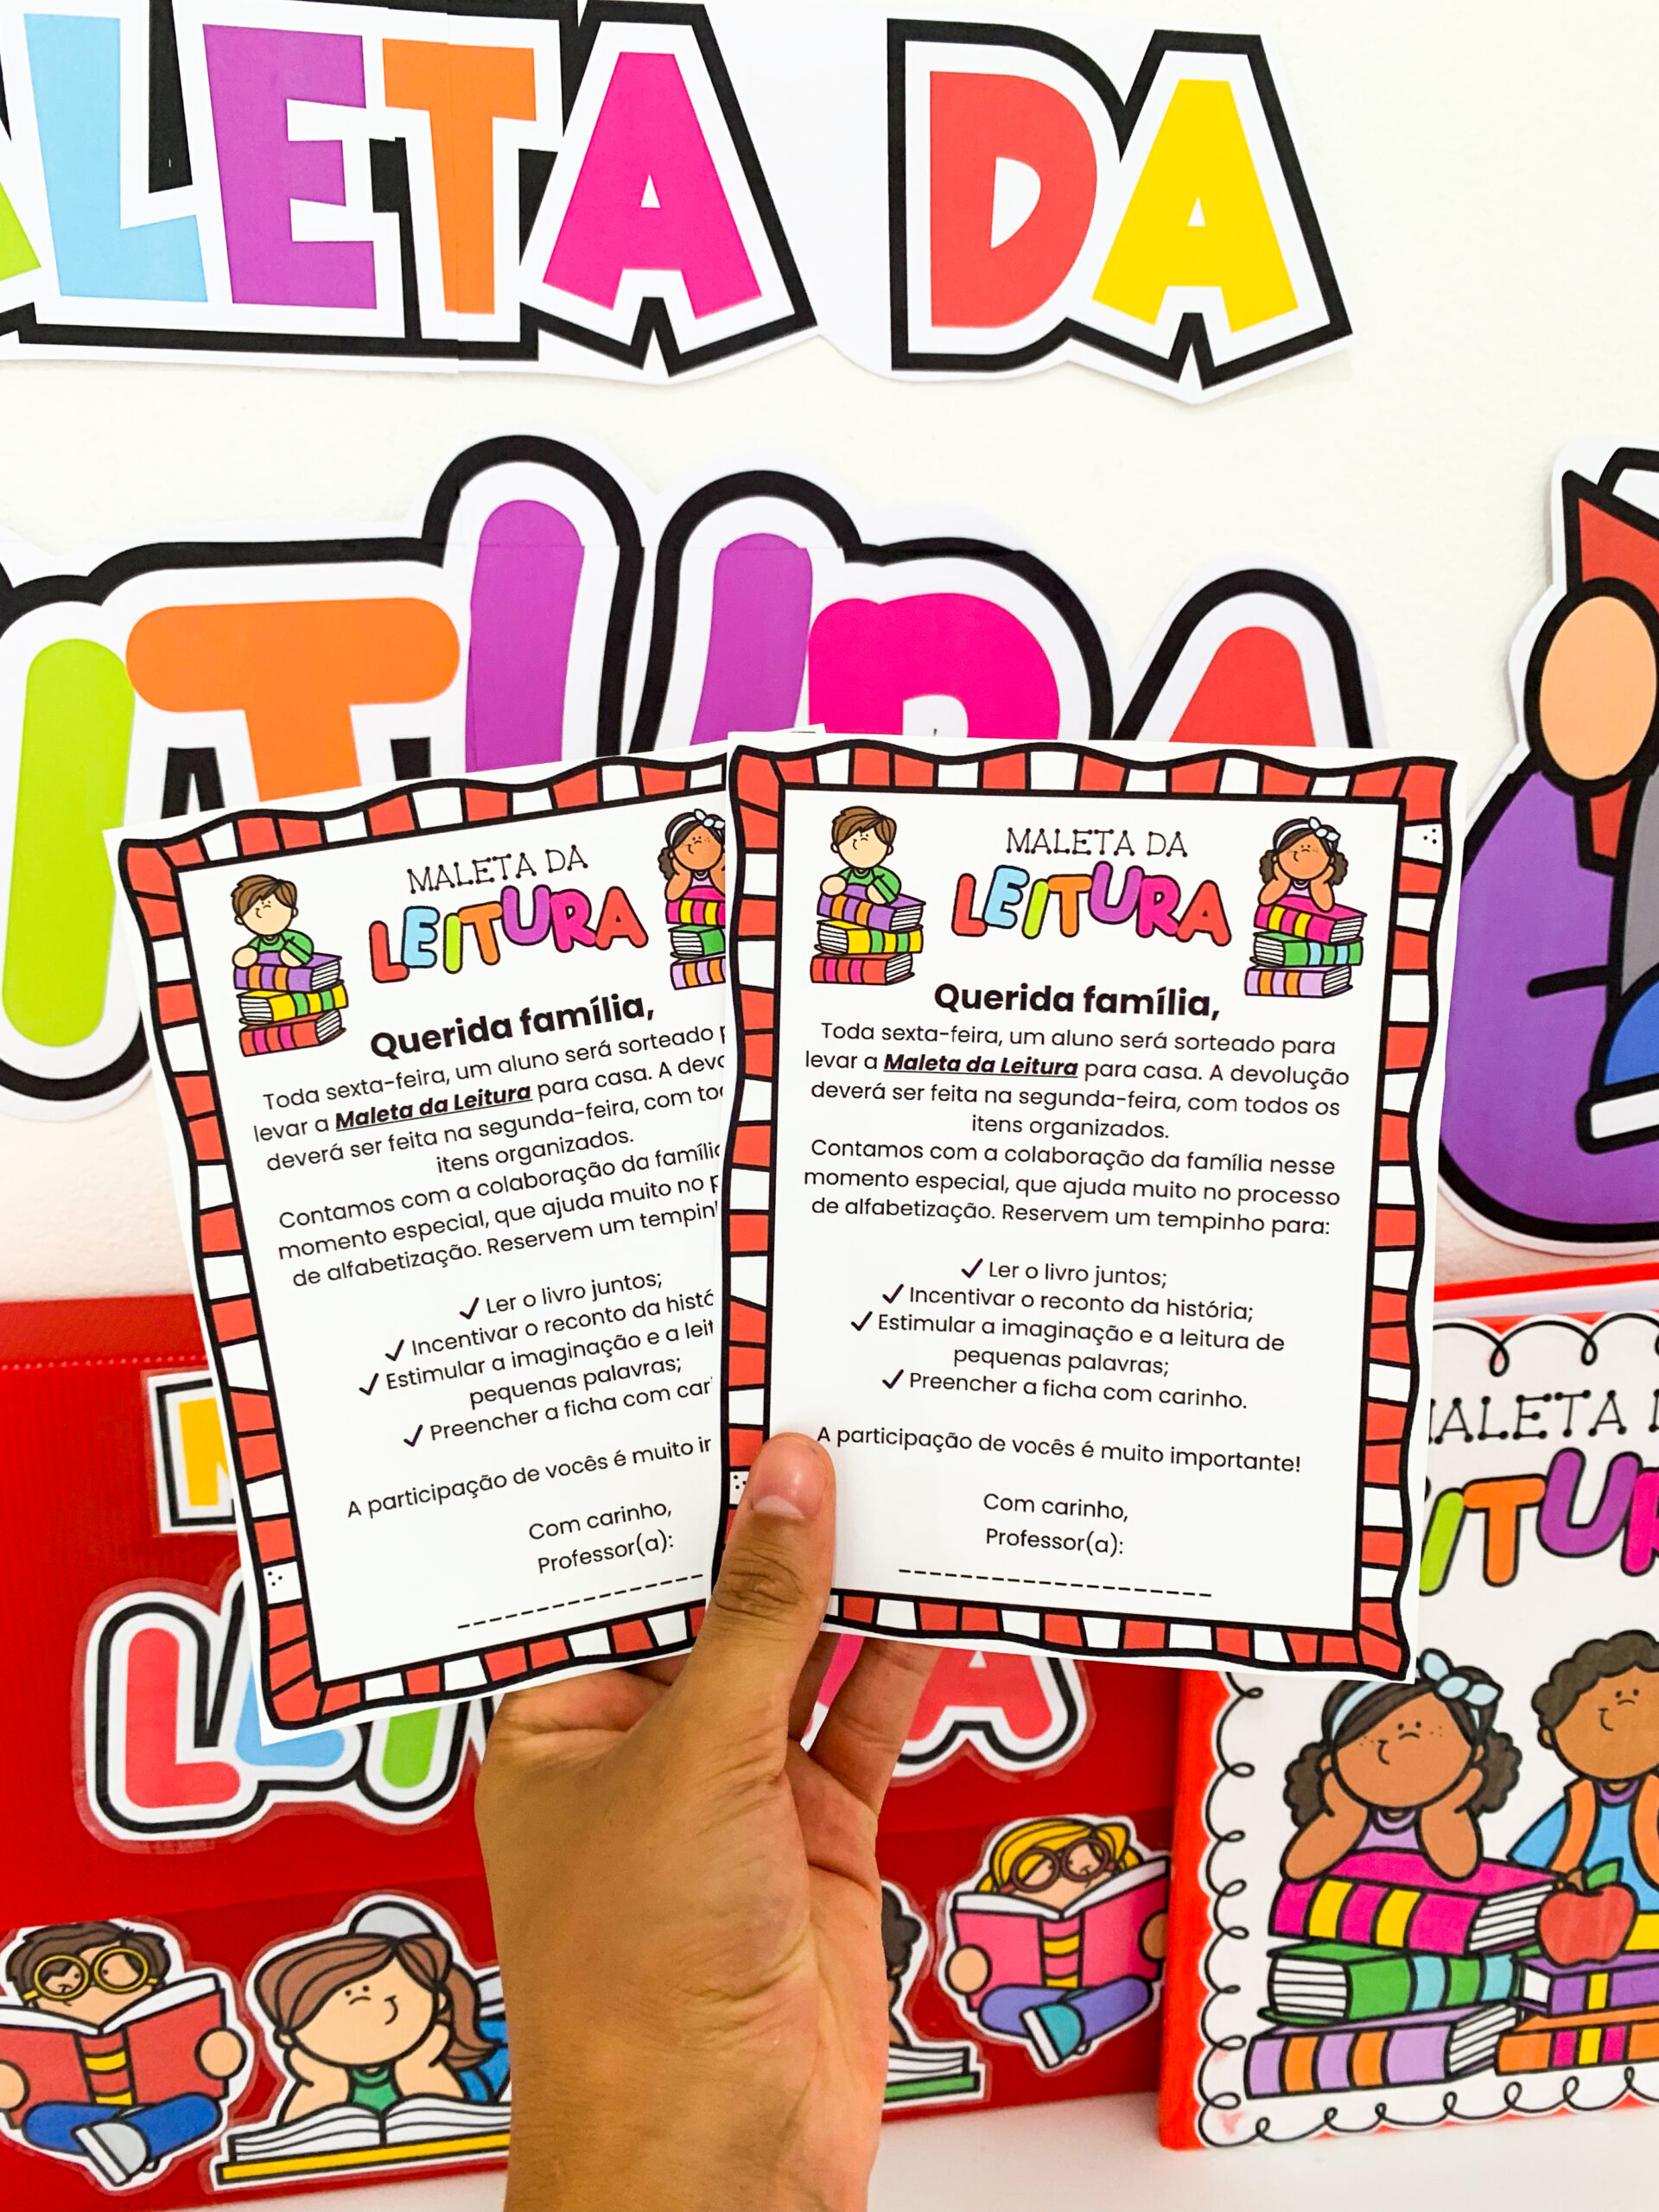 ALETA DA
ITURA
MALETA DA
LEITURA
Querida família,
Toda sexta-feira, um aluno será sorteado
levar a Maleta da Leitura para casa. A
deverá ser feita na segunda-feira, com
itens organizados.
Contamos com a colaboração da
momento especial, que ajuda muito no
de alfabetização. Reservem um
✓ Ler o livro juntos;
✓ Incentivar o reconto da
✓ Estimular a imaginação e a
pequenas palavras;
✓ Preencher a ficha com
A participação de vocês é muito
Com carinho,
Professor(a):
MALETA DA
LEITURA
Querida família,
Toda sexta-feira, um aluno será sorteado para
levar a Maleta da Leitura para casa. A devolução
deverá ser feita na segunda-feira, com todos os
itens organizados.
Contamos com a colaboração da família nesse
momento especial, que ajuda muito no processo
de alfabetização. Reservem um tempinho para:
✓ Ler o livro juntos;
✓ Incentivar o reconto da história;
✓ Estimular a imaginação e a leitura de
pequenas palavras;
✓ Preencher a ficha com carinho.
A participação de vocês é muito importante!
Com carinho,
Professor(a):
ALETA
ITUR
M
LEI A